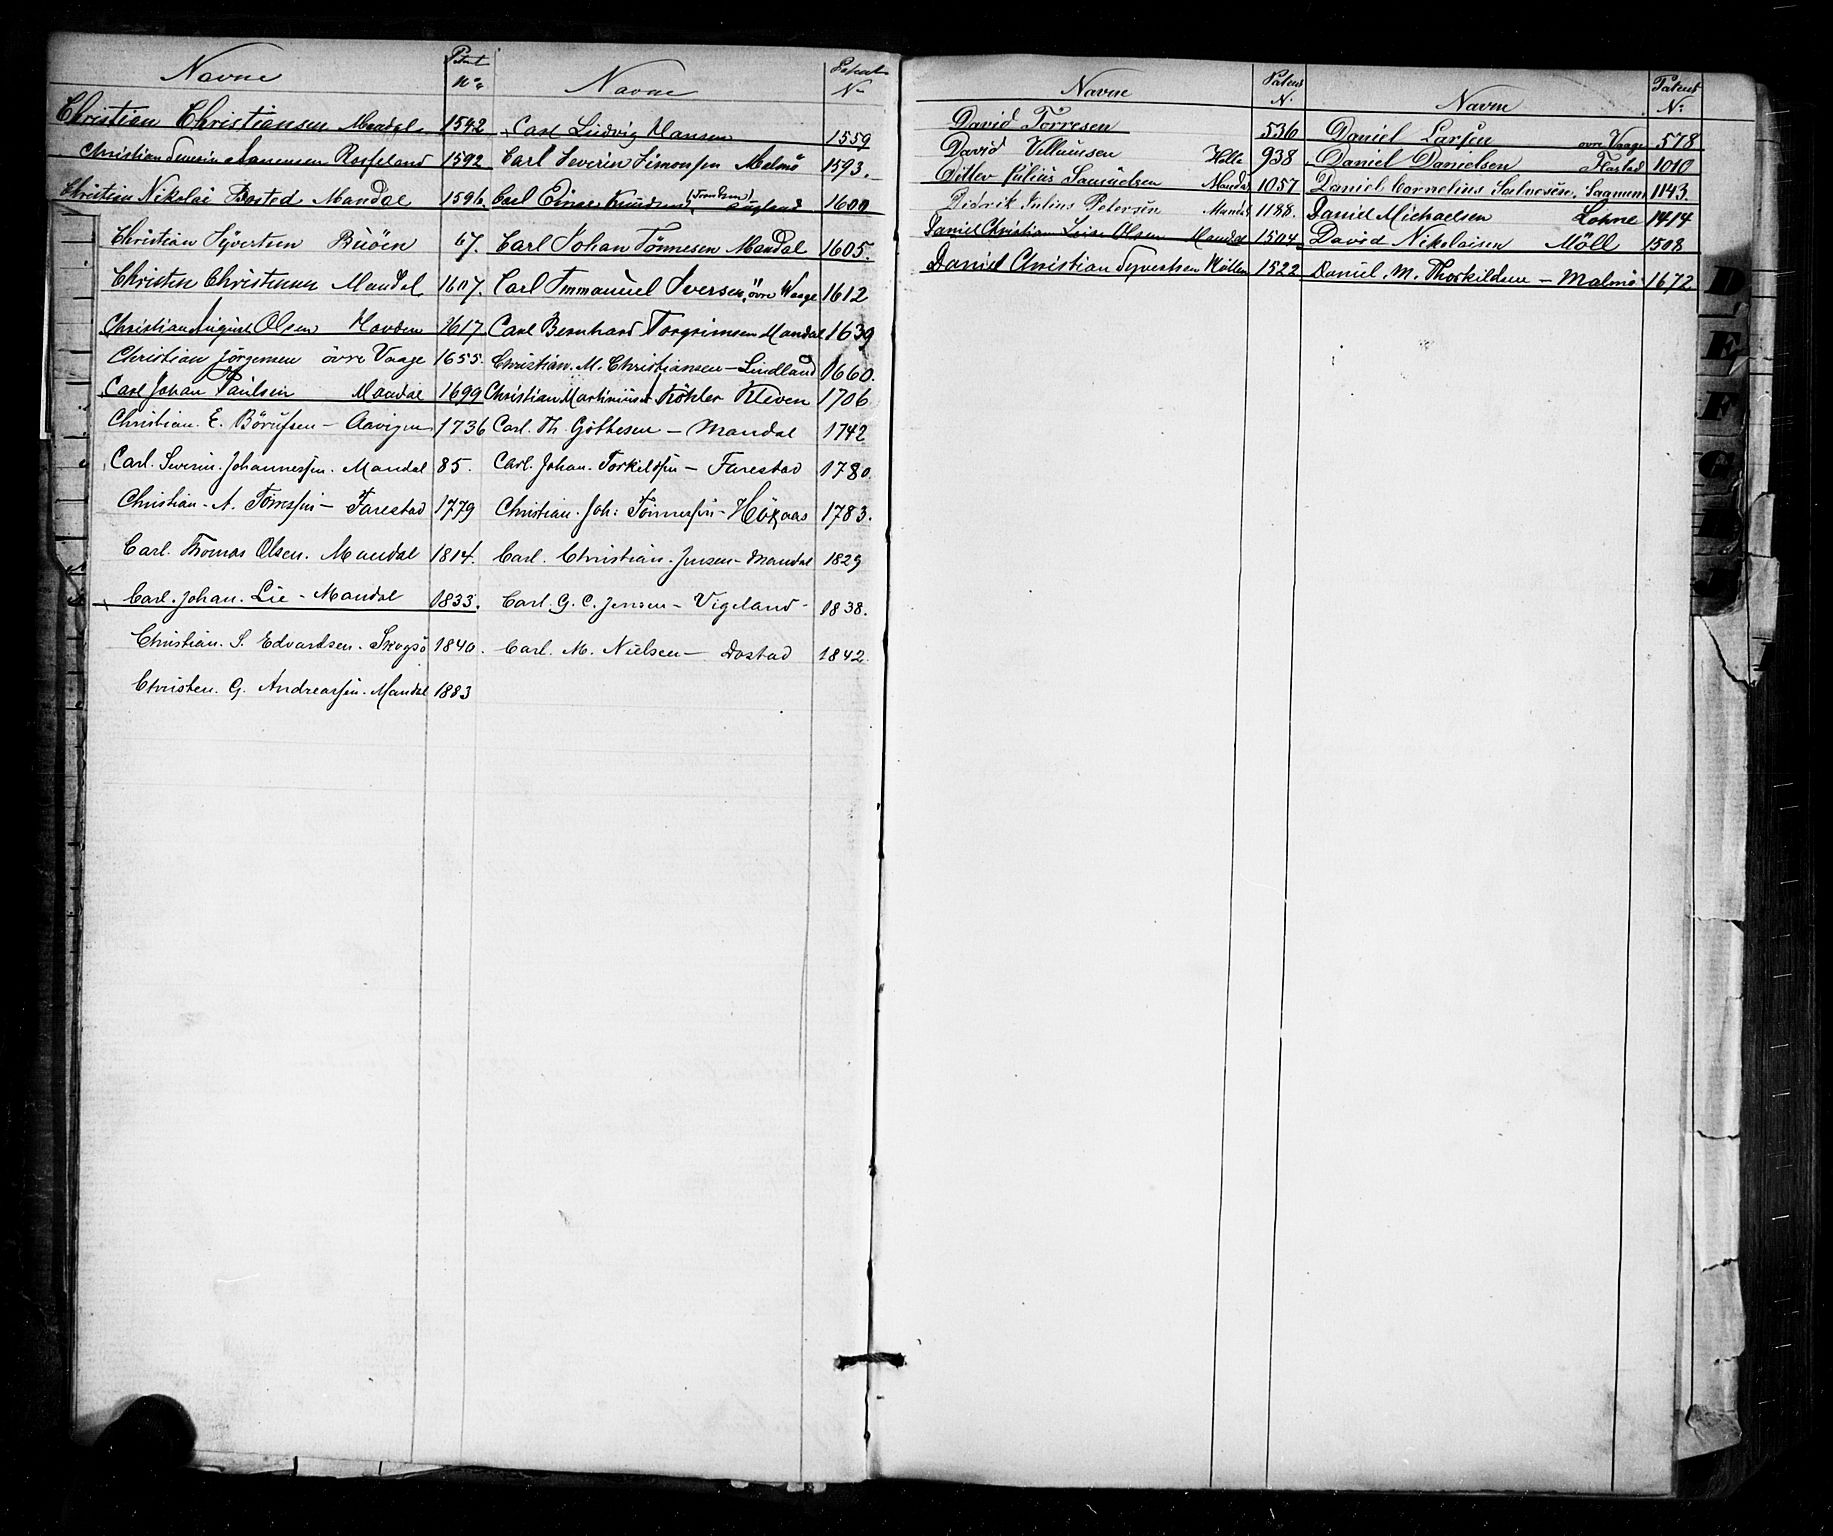 Navne Patent No Navne Patent No
Christian Christiansen Mandal 1542 Carl Ludvig Hansen 1559
Christian Severin Rosseland 1592 Carl Severin Simonsen Malmö 1593.
Christian Nikolai Bosted Mandal 1596. Carl Einar Knudsen 1600
Christian Syvertsen Buöen 67. Carl Johan Tönnesen Mandal 1605.
Christen Christensen Mandal 1607. Carl Immanuel Iversen, övre Waage 1612
Christian August Olsen Hovden 1617 Carl Bernhard Torgrimsen Mandal 1639
Christian Jörgensen övre Vaage 1655. Christian. M. Christiansen – Lindland 1660.
Carl Johan Paulsen Mandal 1699 Christian Martinius Köhler Kleven 1706
Christian. E. Börufsen – Aavigen 1736 Carl. Th. Göthesen – Mandal 1742
Carl. Severin. Johannessen. Mandal 85. Carl. Johan. Torkildsen – Farestad 1780.
Christian. A. Tönnessen – Farestad 1779 Christian. Joh: Tönnessen – Högaas 1783.
Carl. Thomas Olsen. Mandal 1814. Carl. Christian. Jensen – Mandal 1829
Carl. Johan. Lie – Mandal 1833. Carl. G. C. Jensen – Vigeland – 1838.
Christian. S. Edvardsen. Skogsö 1840. Carl. M. Nielsen – Dostad 1842.
Christen. G. Andreassen. Mandal 1883
Navne Patent N. Navne Patent No
David Torresen 536 Daniel Larsen övre Vaage 578
David Villumsen Helle 938 Daniel Danielsen Fiastad 1010
Ditlev Julius Samuelsen Mandal 1057 Daniel Cornelius Salvesen, 1143.
Didrik Julius Petersen Mandal 1188. Daniel Michaelsen Lohne 1414
Daniel Christian Olsen Mandal 1504 David Nikolaisen Möll 1508
Daniel Christian Syvertsen 1522 Daniel. M. Thorkildsen – Malmö 1672
D
E
F
G
H
J